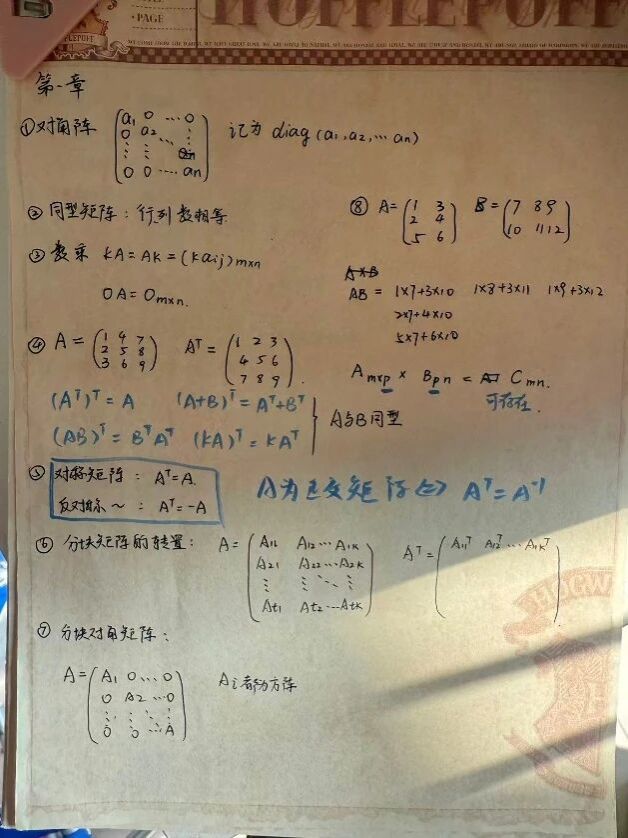 HUFFLEPUFF
PAGE
第一章
①对角阵 (a1 0 ⋯ 0
0 a2 ⋱ ⋮
⋮ ⋮
0 0 ⋯ an) 记为 diag(a1,a2,⋯an)
②同型矩阵:行列数相等.
③数乘 kA=AK=(kaij)m×n
0A=Om×n.
④A=(1 4 7
2 5 8
3 6 9) Aᵀ=(1 2 3
4 5 6
7 8 9).
(Aᵀ)ᵀ=A (A+B)ᵀ=Aᵀ+Bᵀ
(AB)ᵀ=BᵀAᵀ (kA)ᵀ=kAᵀ } A与B同型
⑤对称矩阵:Aᵀ=A.
反对称~:Aᵀ=-A
A为正交矩阵⇔Aᵀ=A⁻¹
⑥分块矩阵的转置: A=(A11 A12⋯A1k
A21 A22⋯A2k
⋮ ⋮ ⋱ ⋮
At1 At2⋯Atk) Aᵀ=(A11ᵀ A12ᵀ⋯A1kᵀ)
⑦分块对角矩阵:
A=(A1 0⋯0
0 A2⋯0
⋮ ⋮ ⋱ ⋮
0 0⋯A) Ai都为方阵
⑧A=(1 3
2 4
5 6) B=(7 8 9
10 11 12)
A×B
AB= 1×7+3×10 1×8+3×11 1×9+3×12
2×7+4×10
5×7+6×10
Am×p × Bpn = Cmn.
可存在.